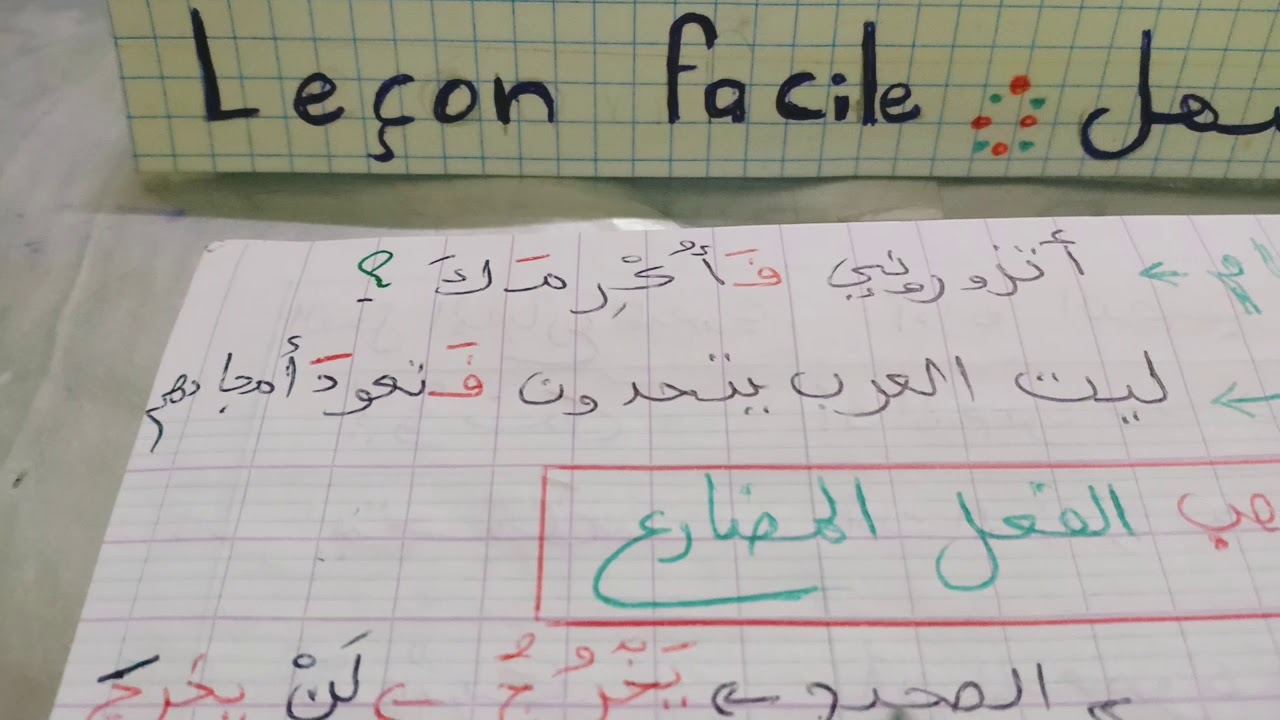 Leçon facile سهل
أتزوروني فَأُكْرِمَكَ ؟
ليت العرب يتحدون فَتعودَ أمجادهم
الفعل المضارع
الصحيح ← يَخْرُجُ ← لَنْ يخرجَ